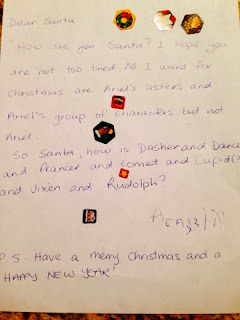 Dear Santa
How are you Santa? I hope you
are not too tired All I want for
Christmas are Ariel's sisters and
Ariel's group of characters but not
Ariel.
So Santa, how is Dasher and Dancer
and Prancer and Comet and Cupid
and Vixen and Rudolph?
P.S. Have a merry Christmas and a
HAPPY NEW YEAR!